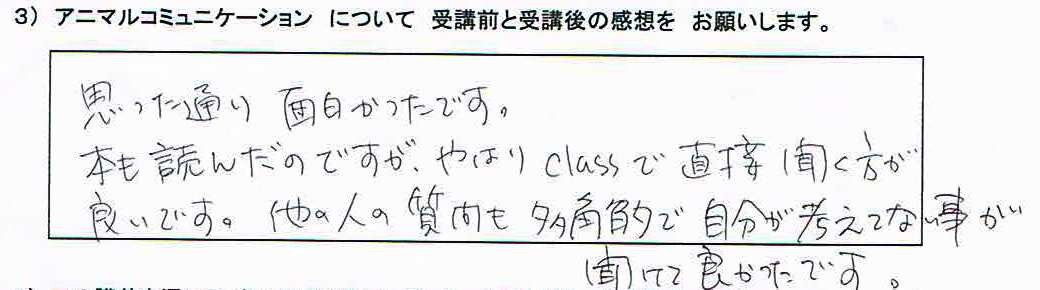 3）アニマルコミュニケーション について 受講前と受講後の感想を お願いします。
思った通り 面白かったです。
本も読んだのですが、やはり classで 直接 聞く方が
良いです。他の人の 質問も 多角的で 自分が考えてない事が
聞けて 良かったです。